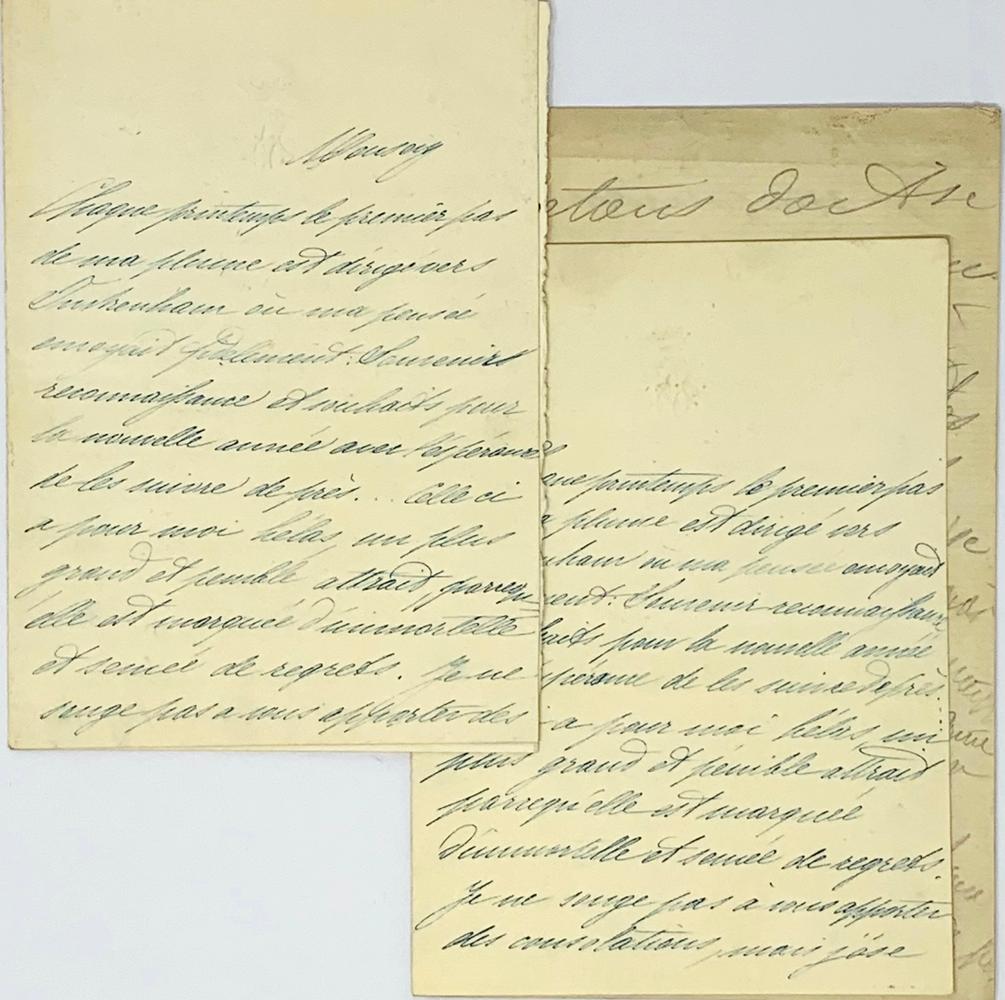 Monseig
Chaque printemps le premier pas
de ma plume est dirigé vers
Twickenham où ma pensée
envoyait fidèlement: Souvenirs
reconnaissance et souhaits pour
la nouvelle année avec l'espérance
de les suivre de près... Celle ci
a pour moi hélas, un plus
grand et penible attrait, parcequ'
elle est marquée d'immortelle
et semée de regrets. Je ne
songe pas a vous apporter des
que printemps le premier pas
a plume est dirigé vers
enham où ma pensée envoyait
ment: Souvenir reconnaissance
haits pour la nouvelle année
spérance de les suivre de près.
a pour moi hélas un
plus grand et penible attrait
parcequ'elle est marquée
d'immortelle et semée de regrets.
Je ne songe pas à vous apporter
des consolations, mais j'ose